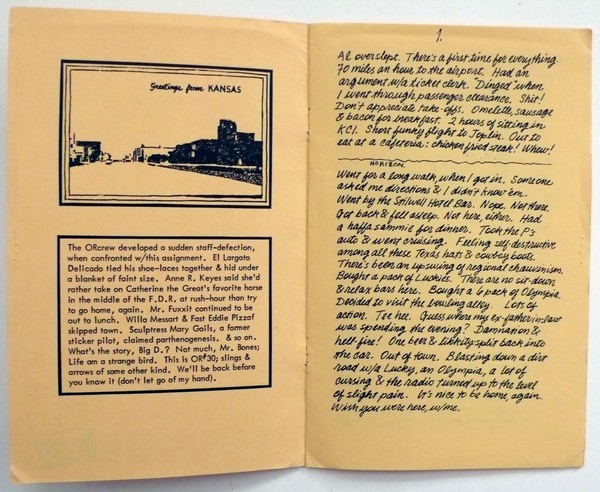 Greetings from KANSAS
The ORcrew developed a sudden staff-defection,
when confronted w/this assignment. El Largato
Delicado tied his shoe-laces together & hid under
a blanket of faint size. Anne R. Keyes said she'd
rather take on Catherine the Great's favorite horse
in the middle of the F.D.R. at rush-hour than try
to go home, again. Mr. Fuxxit continued to be
out to lunch. Willa Messart & Fast Eddie Pizzaf
skipped town. Sculptress Mary Goils, a former
sticker pilot, claimed parthenogenesis. & so on.
What's the story, Big D.? Not much, Mr. Bones;
Life am a strange bird. This is OR#30; slings &
arrows of some other kind. We'll be back before
you know it (don't let go of my hand).
1.
Al overslept. There's a first time for everything.
70 miles an hour to the airport. Had an
argument w/a ticket clerk. "Dinged" when
I went through passenger clearance. Shit!
Don't appreciate take-offs. Omelette, sausage
& bacon for breakfast. 2 hours of sitting in
KCI. Short funky flight to Joplin. Out to
eat at a cafeteria: chicken fried steak! Whew!
HORIZON.
Went for a long walk, when I got in. Someone
asked me directions & I didn't know 'em.
Went by the Stilwell Hotel Bar. Nope. Not there.
Got back & fell asleep. Not here, either. Had
a haffa sammie for dinner. Took the P's
auto & went cruising. Feeling self destructive
among all these Texas hats & cowboy boots.
There's been an upswing of regional chauvinism.
Bought a pack of Luckies. There are no sit-down
& relax bars here. Bought a 6 pack of Olympia.
Decided to visit the bowling alley. Lots of
action. Tee hee. Guess where my ex-father-in-law
was spending the evening? Damnation &
hell fire! One beer & likkity split back into
the car. Out of town. Blasting down a dirt
road w/a Lucky, an Olympia, a lot of
cursing & the radio turned up to the level
of slight pain. It's nice to be home, again.
Wish you were here, w/me.